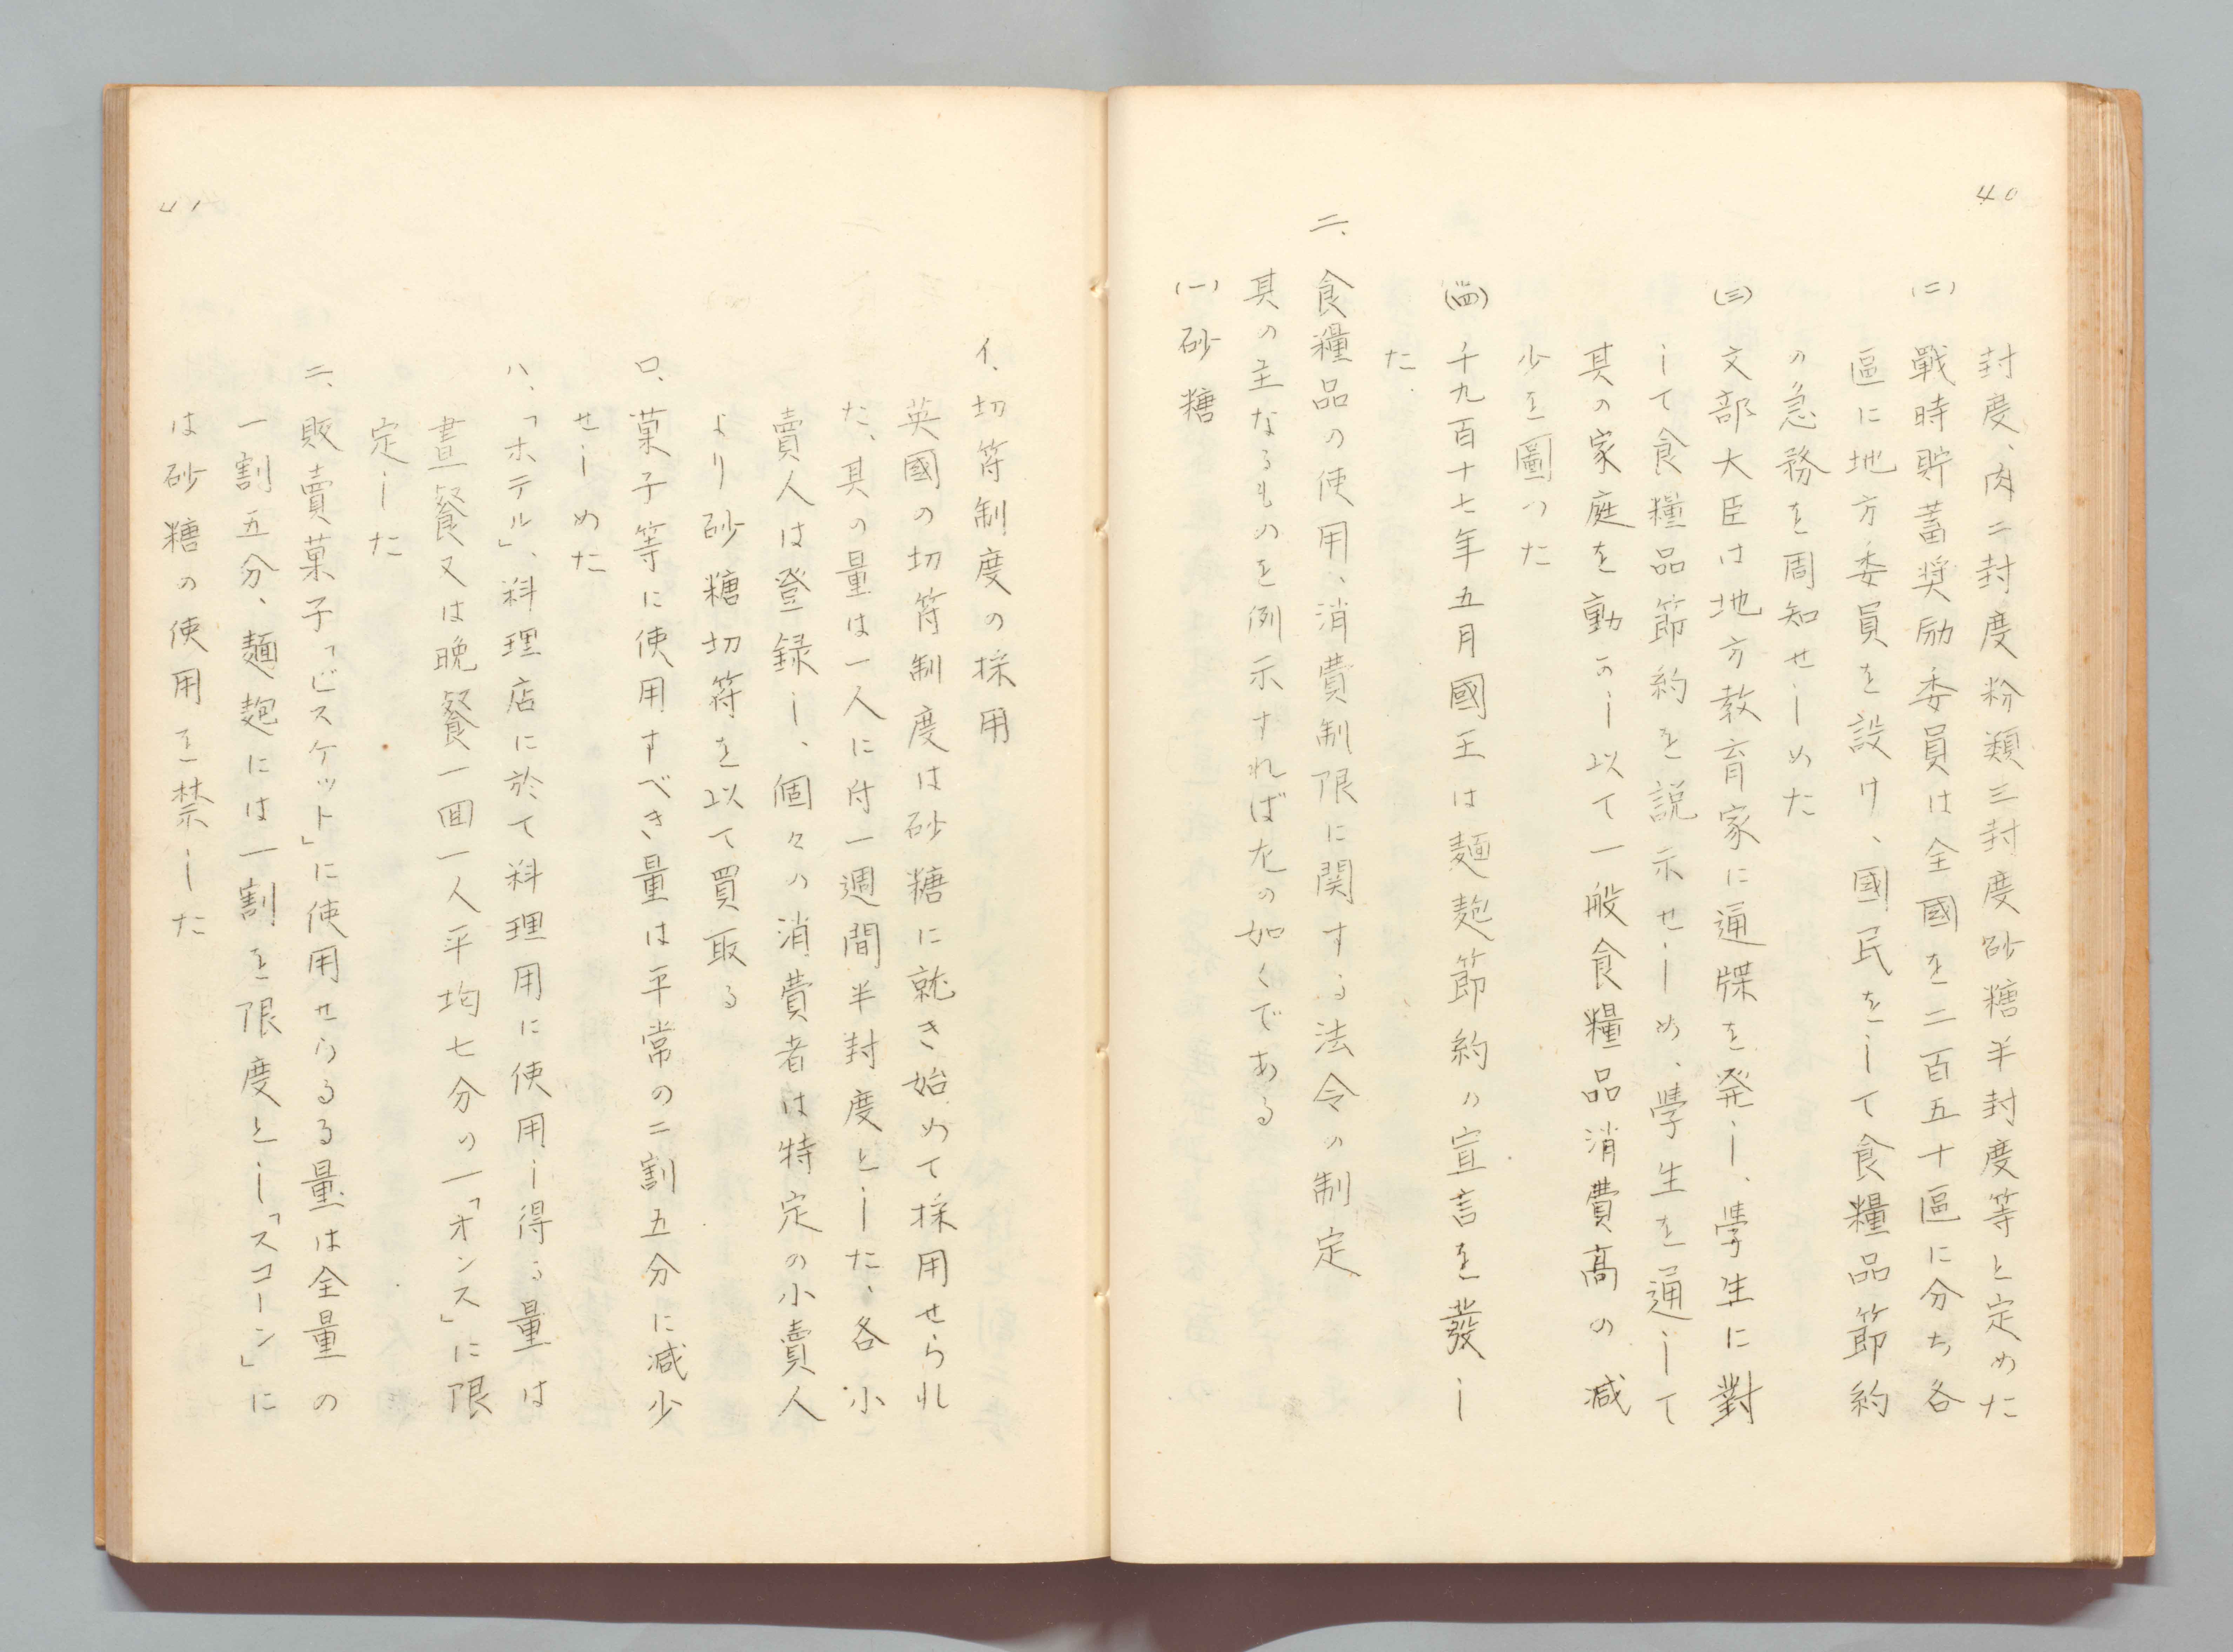 40
封度、肉二封度粉類三封度砂糖半封度等と定めた
(二) 戰時貯蓄奨励委員は全國を二百五十區に分ち各
區に地方委員を設け、國民をして食糧品節約
の急務を周知せしめた
(三) 文部大臣は地方教育家に通牒を発し、學生に對
して食糧品節約を説示せしめ、學生を通して
其の家庭を動かし以て一般食糧品消費高の減
少を圖つた
(四) 千九百十七年五月國王は麺麭節約の宣言を發し
た.
二、食糧品の使用、消費制限に関する法令の制定
其の主なるものを例示すれば左の如くである
(一) 砂糖
イ、切符制度の採用
英國の切符制度は砂糖に就き始めて採用せられ
た、其の量は一人に付一週間半封度とした、各小
賣人は登録し、個々の消費者は特定の小賣人
より砂糖切符を以て買取る
ロ、菓子等に使用すべき量は平常の二割五分に減少
せしめた
ハ、「ホテル」、料理店に於て料理用に使用し得る量は
晝餐又は晩餐一囬一人平均七分の一「オンス」に限
定した
ニ、販賣菓子「ビスケット」に使用せらるる量は全量の
一割五分、麺麭には一割を限度とし「スコーン」に
は砂糖の使用を禁した
41